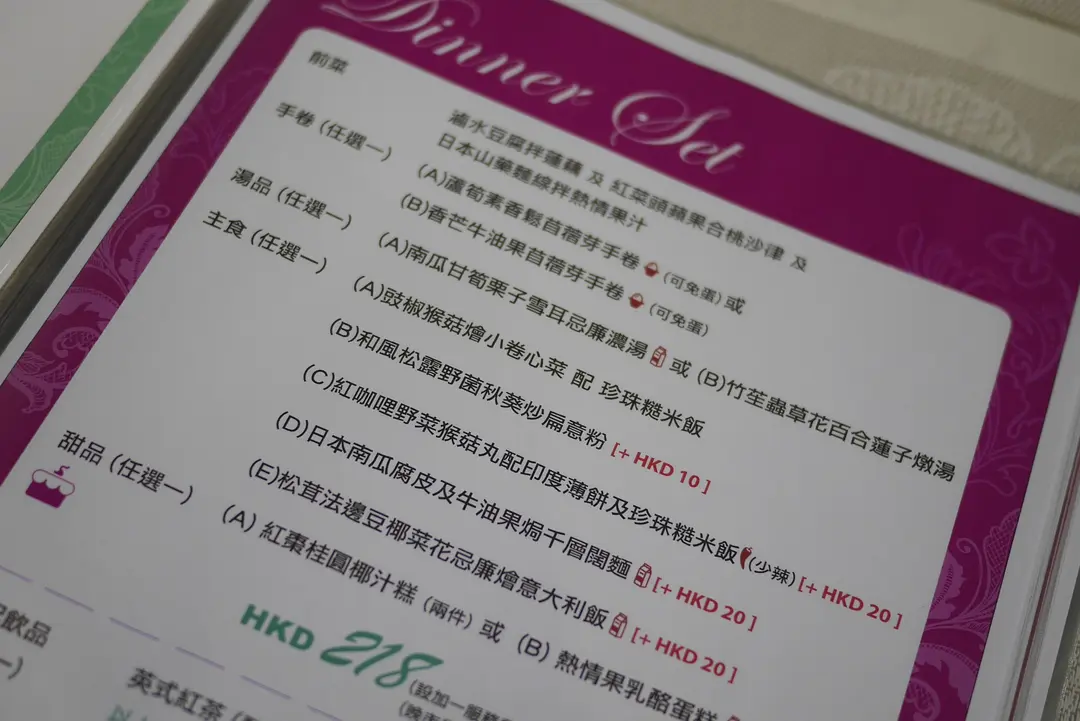 Dinner Set
前菜
滷水豆腐拌蓮藕 及 紅菜頭蘋果合桃沙律 及
日本山藥麵線拌熱情果汁
手卷 (任選一)
(A)蘆筍素香鬆苜蓿芽手卷 (可免蛋) 或
(B)香芒牛油果苜蓿芽手卷 (可免蛋)
湯品 (任選一)
(A)南瓜甘筍栗子雪耳忌廉濃湯 或 (B)竹笙蟲草花百合蓮子燉湯
主食 (任選一)
(A)豉椒猴菇燴小卷心菜 配 珍珠糙米飯
(B)和風松露野菌秋葵炒扁意粉 [+ HKD 10 ]
(C)紅咖哩野菜猴菇丸配印度薄餅及珍珠糙米飯 (少辣) [+ HKD 20 ]
(D)日本南瓜腐皮及牛油果焗千層闊麵 [+ HKD 20 ]
(E)松茸法邊豆椰菜花忌廉燴意大利飯 [+ HKD 20 ]
甜品 (任選一)
(A) 紅棗桂圓椰汁糕 (兩件) 或 (B) 熱情果乳酪蛋糕
HKD 218
(設加一服務
(晚市
飲品
一)
英式紅茶